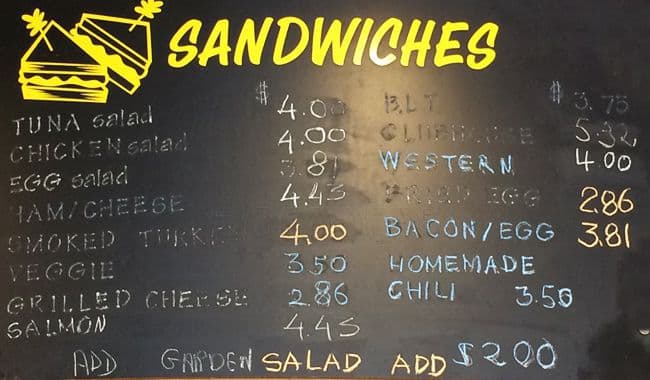 SANDWICHES
TUNA salad $ 4.00
CHICKEN salad 4.00
EGG salad 3.81
HAM/CHEESE 4.45
SMOKED TURKEY 4.00
VEGGIE 3.50
GRILLED CHEESE 2.86
SALMON 4.45
BLT $ 3.75
CLUBHOUSE 5.32
WESTERN 4.00
FRIED EGG 2.86
BACON/EGG 3.81
HOMEMADE
CHILI 3.50
ADD GARDEN SALAD ADD $2.00